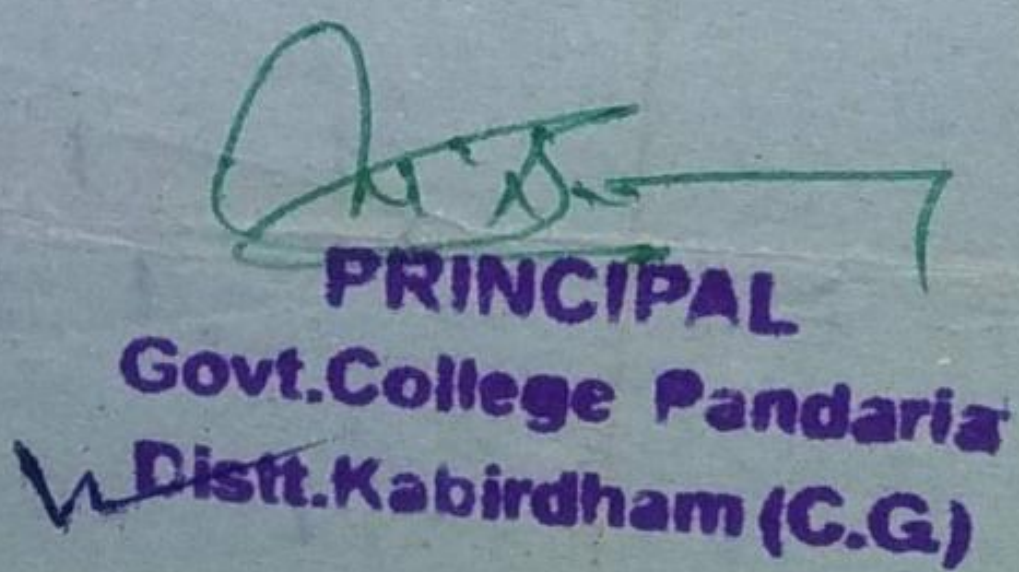 PRINCIPAL
Govt.College Pandaria
Distt.Kabirdham (C.G.)